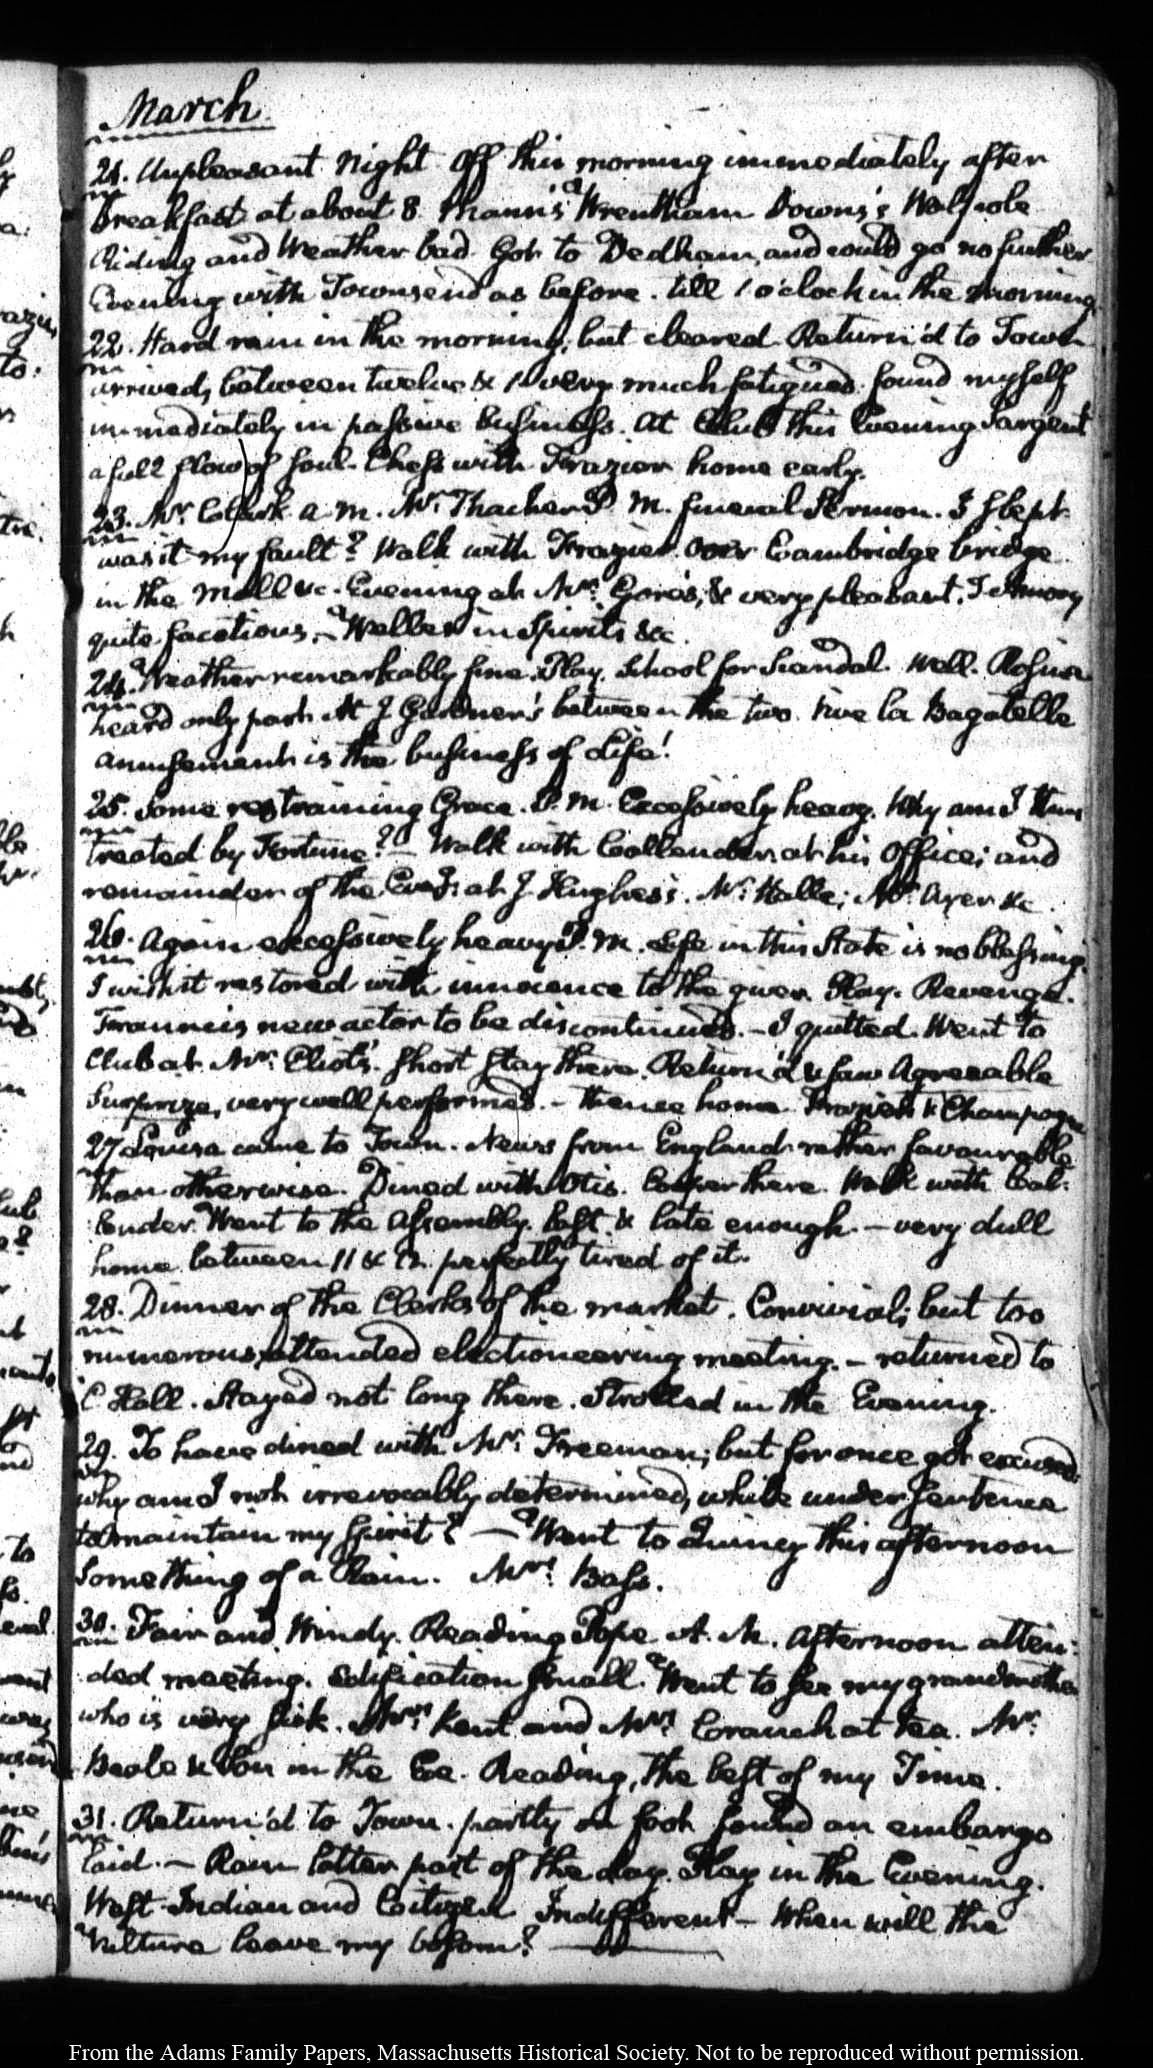 March
21. Unpleasant Night. Off this morning immediately after
breakfast at about 8. Mann's Wrentham Downs's Walpole
Riding and Weather bad. Got to Dedham, and could go no further
Evening with Townsend as before. till 1 o'clock in the morning
22. Hard rain in the morning, but cleared. Return'd to Town
arrived, between twelve & 1. very much fatigued. found myself
immediately in passive business. At Club this Evening Sargent
a full flow of soul. Chess with Frazier home early.
23. Mr. Clark a.m. Mr. Thacher P. M. funeral Sermon. I slept
was it my fault? Walk with Frazier over Cambridge bridge
in the Mall &c. Evening at Mrs. Gore's, & very pleasant. T Amory
quite facetious, — Welles in Spirits &c.
24. Weather remarkably fine. Play. School for Scandal. Well. Rosina
heard only part. At J Gardner's between the two. Vive la Bagatelle
amusement is the business of Life!
25. Some restraining Grace. P. M. Excessively heavy. Why am I thus
treated by Fortune? — Walk with Callender, at his Office; and
remainder of the Eveg: at J Hughes's. Mr. Halle; Mr. Ayer &c.
26. Again excessively heavy P. M. Life in this State is no blessing
I wish it restored with innocence to the giver. Play. Revenge.
new actor to be discontinued. — I quitted. Went to
Club at Mr. Eliot's. Short stay there. Return'd & saw Agreeable
Surprize, very well performed. — thence home. Frazier & Champagne
27 Louisa came to Town. News from England rather favourable
than otherwise. Dined with Otis. Cooper there. Walk with Cal-
lender. Went to the Assembly. Last & late enough. — very dull
home between 11 & 12. perfectly tired of it.
28. Dinner of the Clerks of the market. Convivial; but too
numerous, attended electioneering meeting. — returned to
C Hall. Stayed not long there. Strolled in the Evening.
29. To have dined with Mr. Freeman; but for once got excused
why am I not irrevocably determined, while under sentence
to maintain my spirit? — Went to Quincy this afternoon
Something of a Rain. Mrs. Bass.
30. Fair and Windy. Reading Pope A. M. Afternoon atten-
ded meeting. Edification small. Went to see my grandmother
who is very sick. Mrs. Kent and Mrs. Cranch at tea. Mr.
Beale & Son in the Eve. Reading, the best of my Time.
31. Return'd to Town. partly on foot found an embargo
laid. — Rain latter part of the day. Play in the Evening.
West-Indian and Citizen Indifferent — When will the
Vulture leave my bosom? —
From the Adams Family Papers, Massachusetts Historical Society. Not to be reproduced without permission.